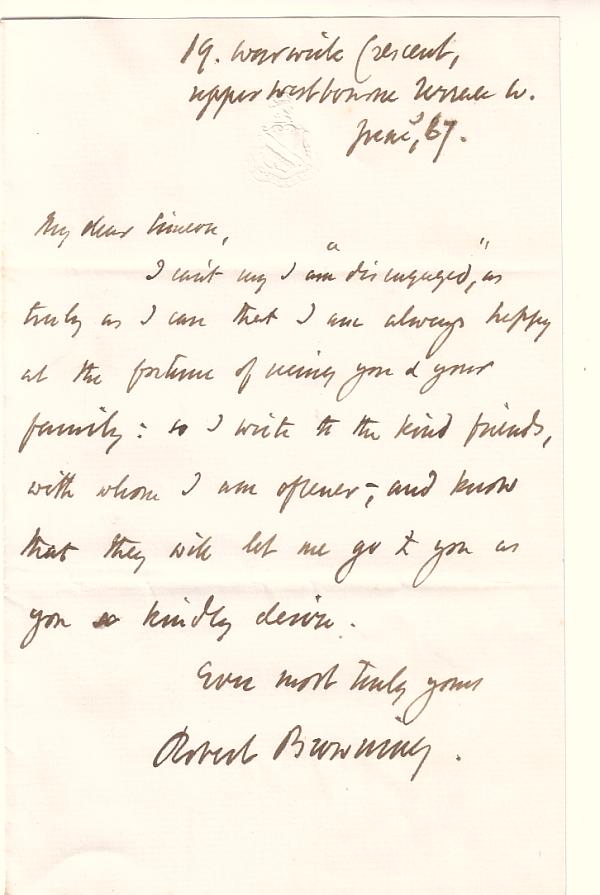 19. Warwick Crescent,
Upper Westbourne Terrace W.
June, 67.
My dear Simeon,
I can't say I am "disengaged," as
truly as I can that I am always happy
at the fortune of seeing you & your
family: so I write to the kind friends,
with whom I am oftener-, and know
that they will let me go to you as
you so kindly desire.
Ever most truly yours
Robert Browning.